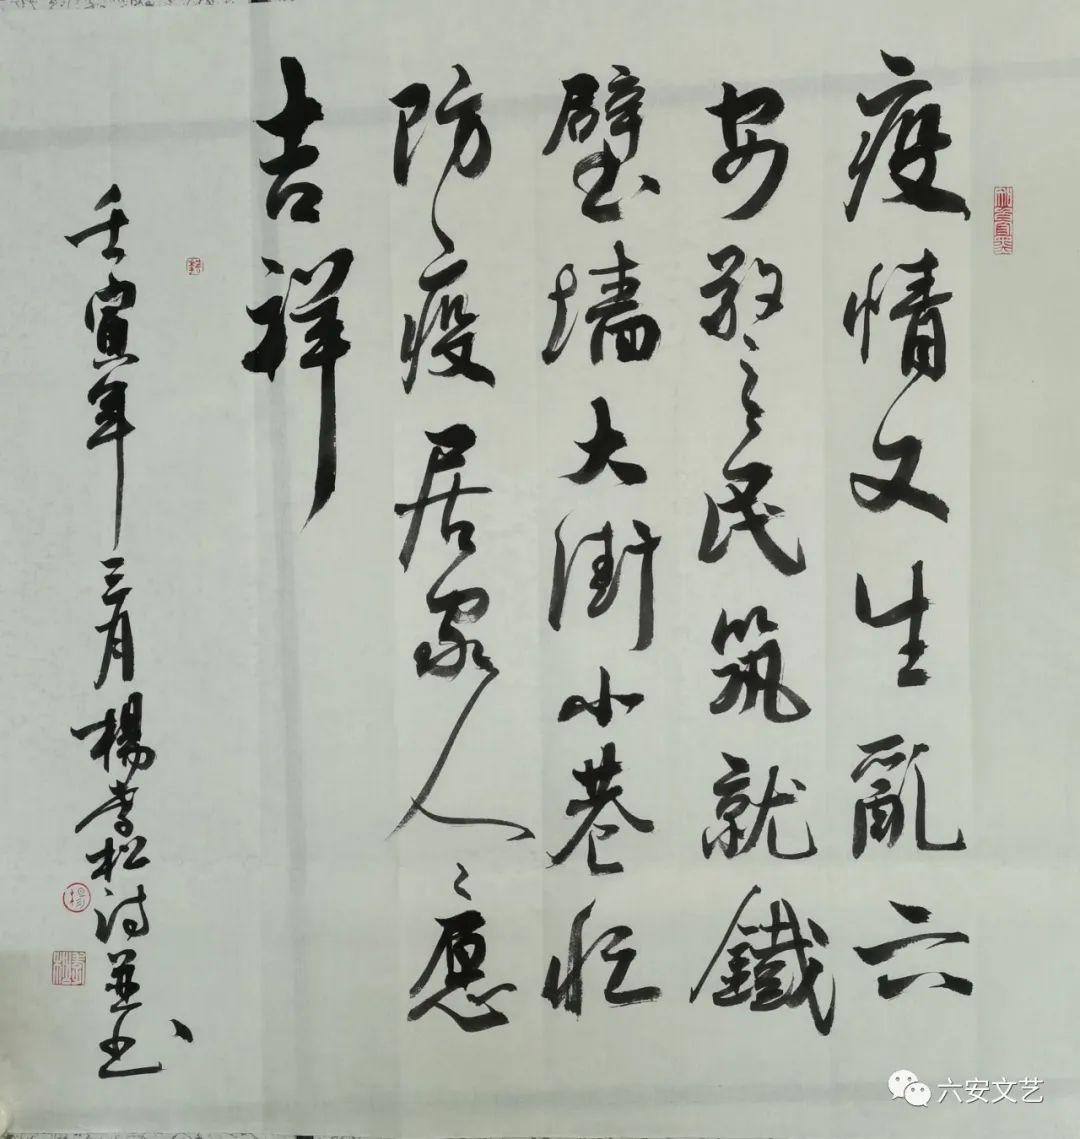 疫情又生亂六
安警民筑就鐵
壁墙大街小巷忙
防疫居家人々愿
吉祥
壬寅年三月楊孝松诗並书
六安文艺